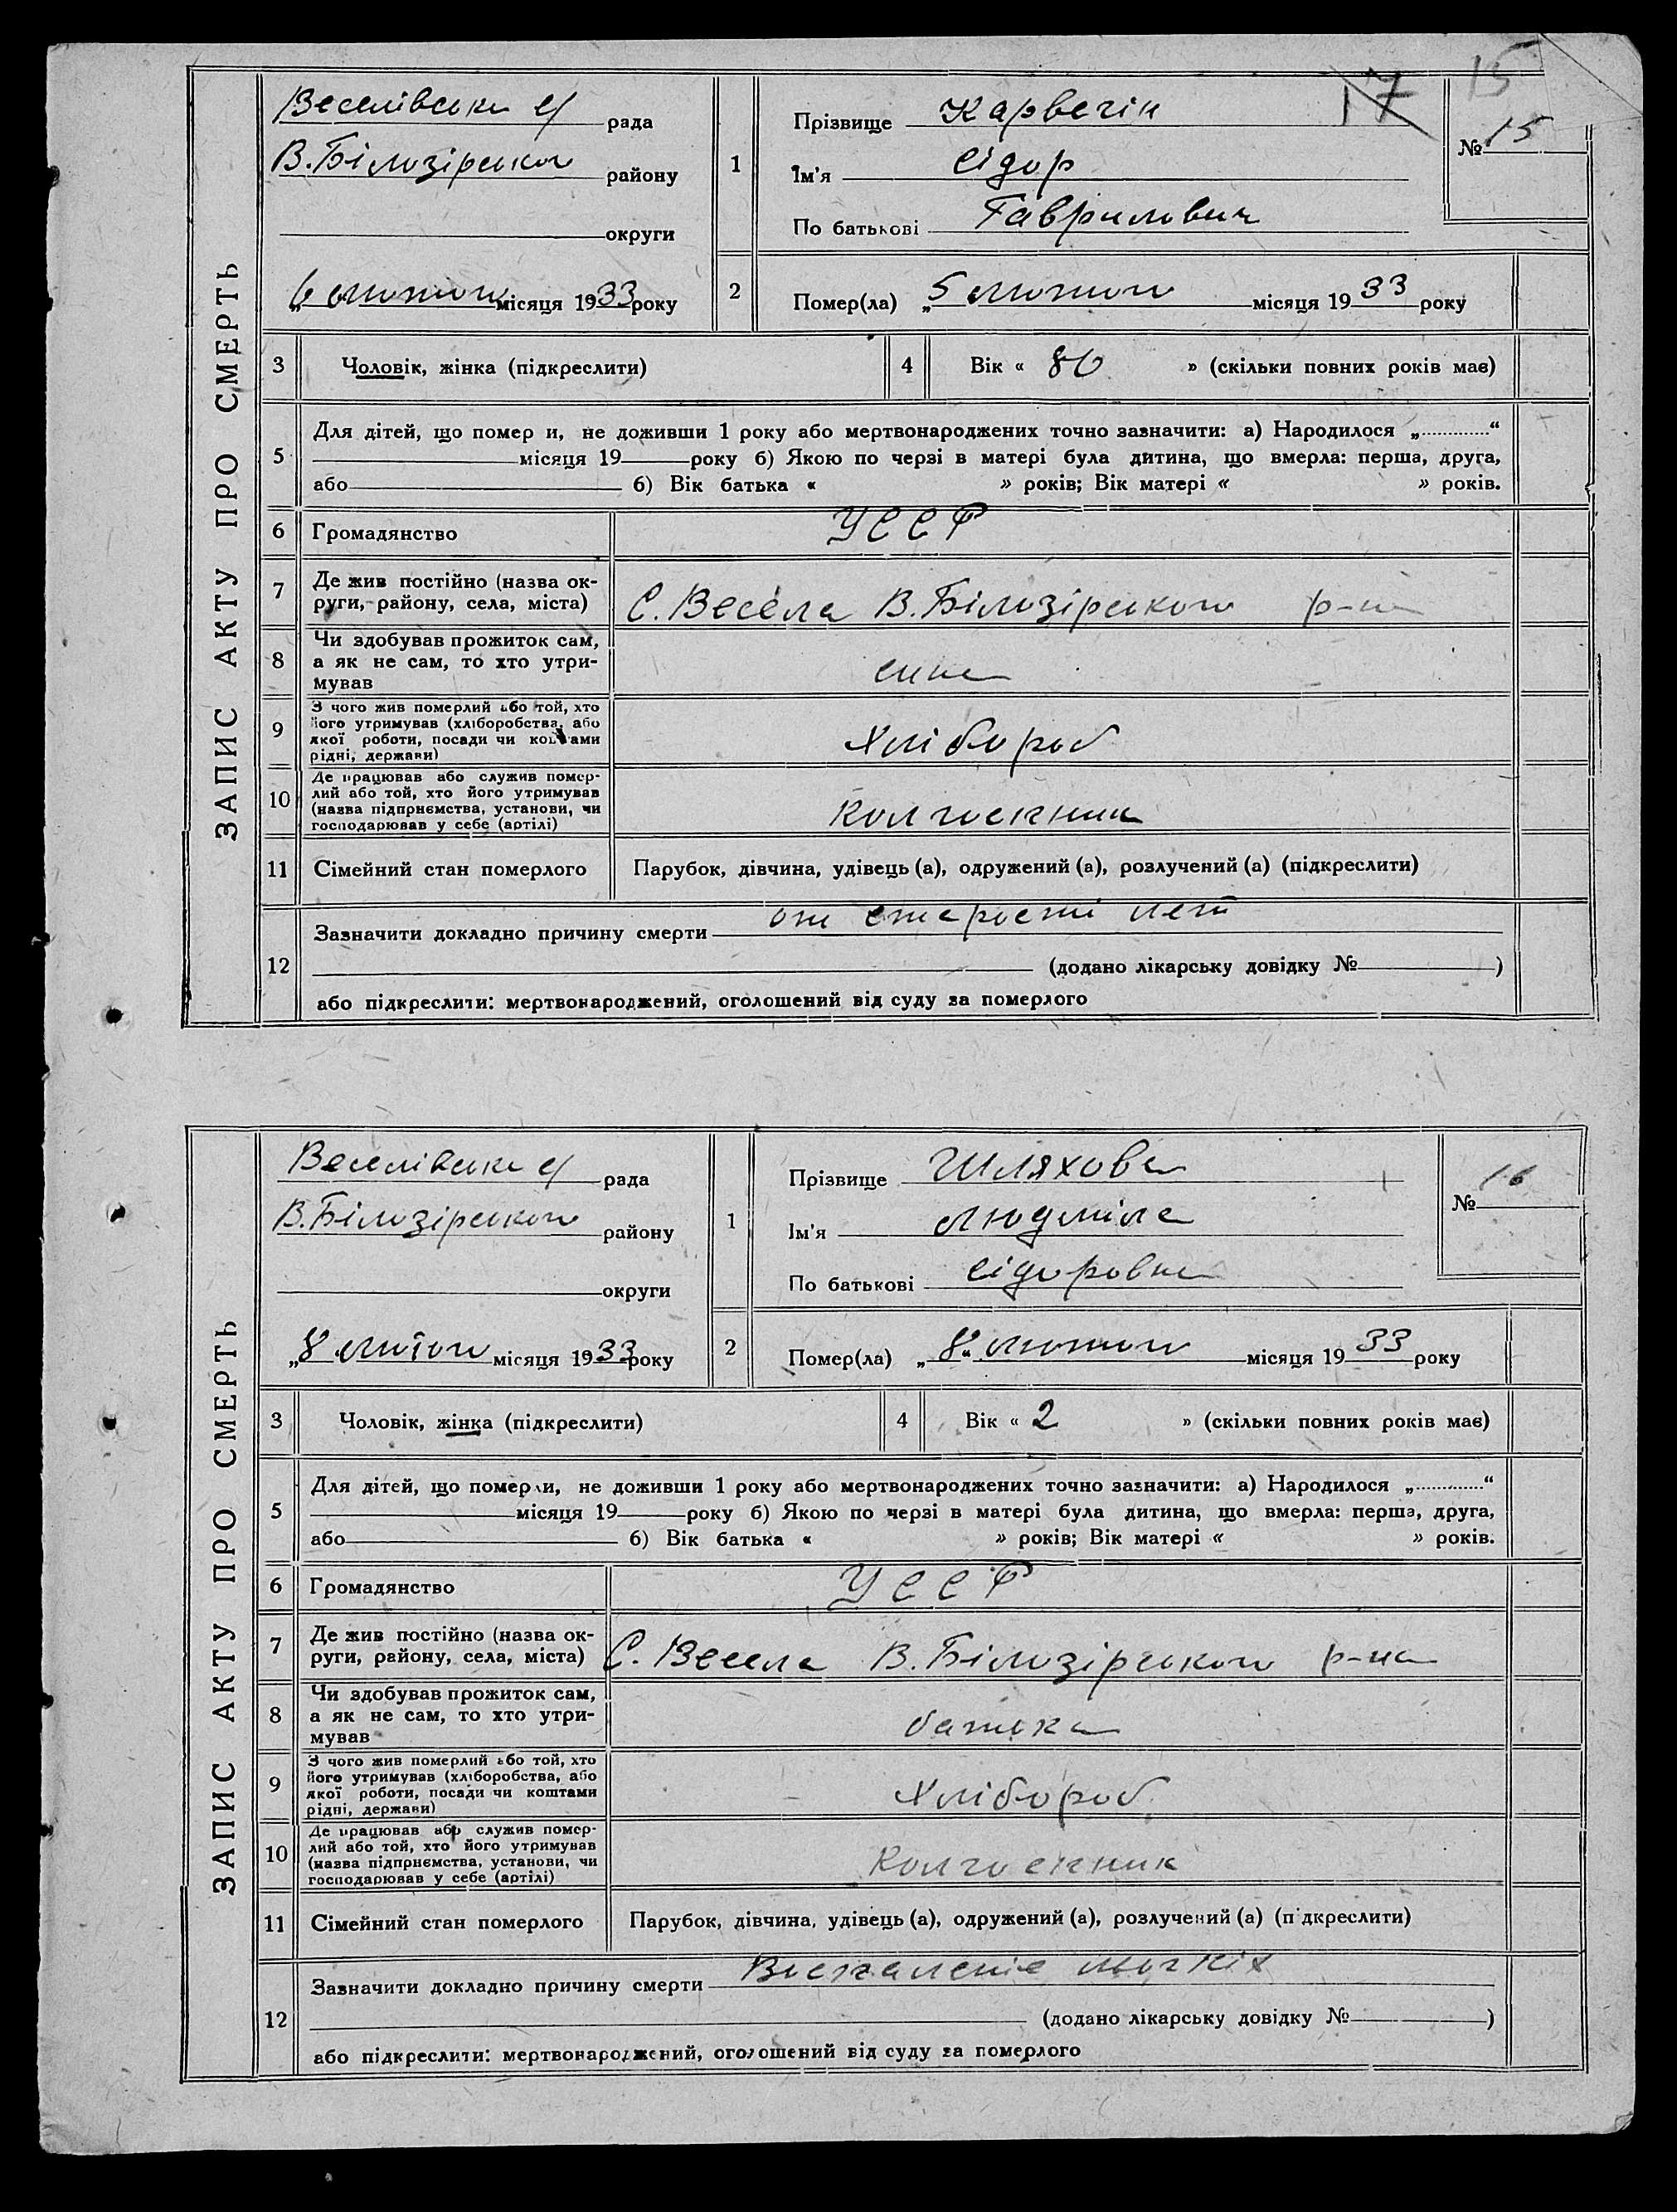 15
17
ЗАПИС АКТУ ПРО СМЕРТЬ
Веселівська с/ рада
В.Білозірського району
округи
„6 лютого місяця 1933 року
1
Прізвище Карвегін
Ім'я Сідор
По батькові Гаврилович
№ 15
2
Помер(ла) „5 лютого місяця 1933 року
3 Чоловік, жінка (підкреслити)
4 Вік « 80 » (скільки повних років має)
5
Для дітей, що помер и, не доживши 1 року або мертвонароджених точно зазначити: а) Народилося „............“
місяця 19 року б) Якою по черзі в матері була дитина, що вмерла: перша, друга,
або б) Вік батька « » років; Вік матері « » років.
6 Громадянство УССР
7 Де жив постійно (назва ок-
руги, району, села, міста) С. Весела В.Білозірського р-на
8 Чи здобував прожиток сам,
а як не сам, то хто утри-
мував сина
9 З чого жив померлий або той, хто
його утримував (хліборобства, або
якої роботи, посади чи коштами
рідні, держави) Хлібороб
10 Де працював або служив помер-
лий або той, хто його утримував
(назва підприємства, установи, чи
господарював у себе (артілі) Колгоспник
11 Сімейний стан померлого Парубок, дівчина, удівець (а), одружений (а), розлучений (а) (підкреслити)
12
Зазначити докладно причину смерти от старості лет
(додано лікарську довідку № )
або підкреслити: мертвонароджений, оголошений від суду за померлого
ЗАПИС АКТУ ПРО СМЕРТЬ
Веселівська с/ рада
В.Білозірського району
округи
„8 лютого місяця 1933 року
1
Прізвище Шляхова
Ім'я Людміла
По батькові Сідоровна
№ 16
2
Помер(ла) „8“ лютого місяця 1933 року
3 Чоловік, жінка (підкреслити)
4 Вік « 2 » (скільки повних років має)
5
Для дітей, що померли, не доживши 1 року або мертвонароджених точно зазначити: а) Народилося „............“
місяця 19 року б) Якою по черзі в матері була дитина, що вмерла: перша, друга,
або б) Вік батька « » років; Вік матері « » років.
6 Громадянство УССР
7 Де жив постійно (назва ок-
руги, району, села, міста) С. Весела В.Білозірського р-на
8 Чи здобував прожиток сам,
а як не сам, то хто утри-
мував батька
9 З чого жив померлий або той, хто
його утримував (хліборобства, або
якої роботи, посади чи коштами
рідні, держави) Хлібороб
10 Де працював або служив помер-
лий або той, хто його утримував
(назва підприємства, установи, чи
господарював у себе (артілі) Колгоспник
11 Сімейний стан померлого Парубок, дівчина, удівець (а), одружений (а), розлучений (а) (підкреслити)
12
Зазначити докладно причину смерти Воспаленіе льогкіх
(додано лікарську довідку № )
або підкреслити: мертвонароджений, оголошений від суду за померлого